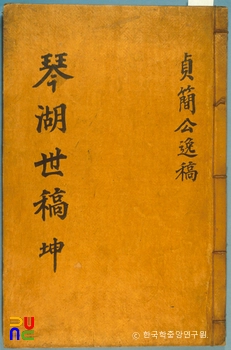 貞簡公逸稿
琴湖世稿 坤
PUNC
© 한국학중앙연구원